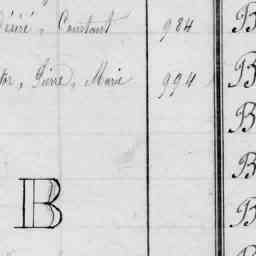 Désiré, Constant 984 B
Pierre, Marie 994 B
B
B
B B
B